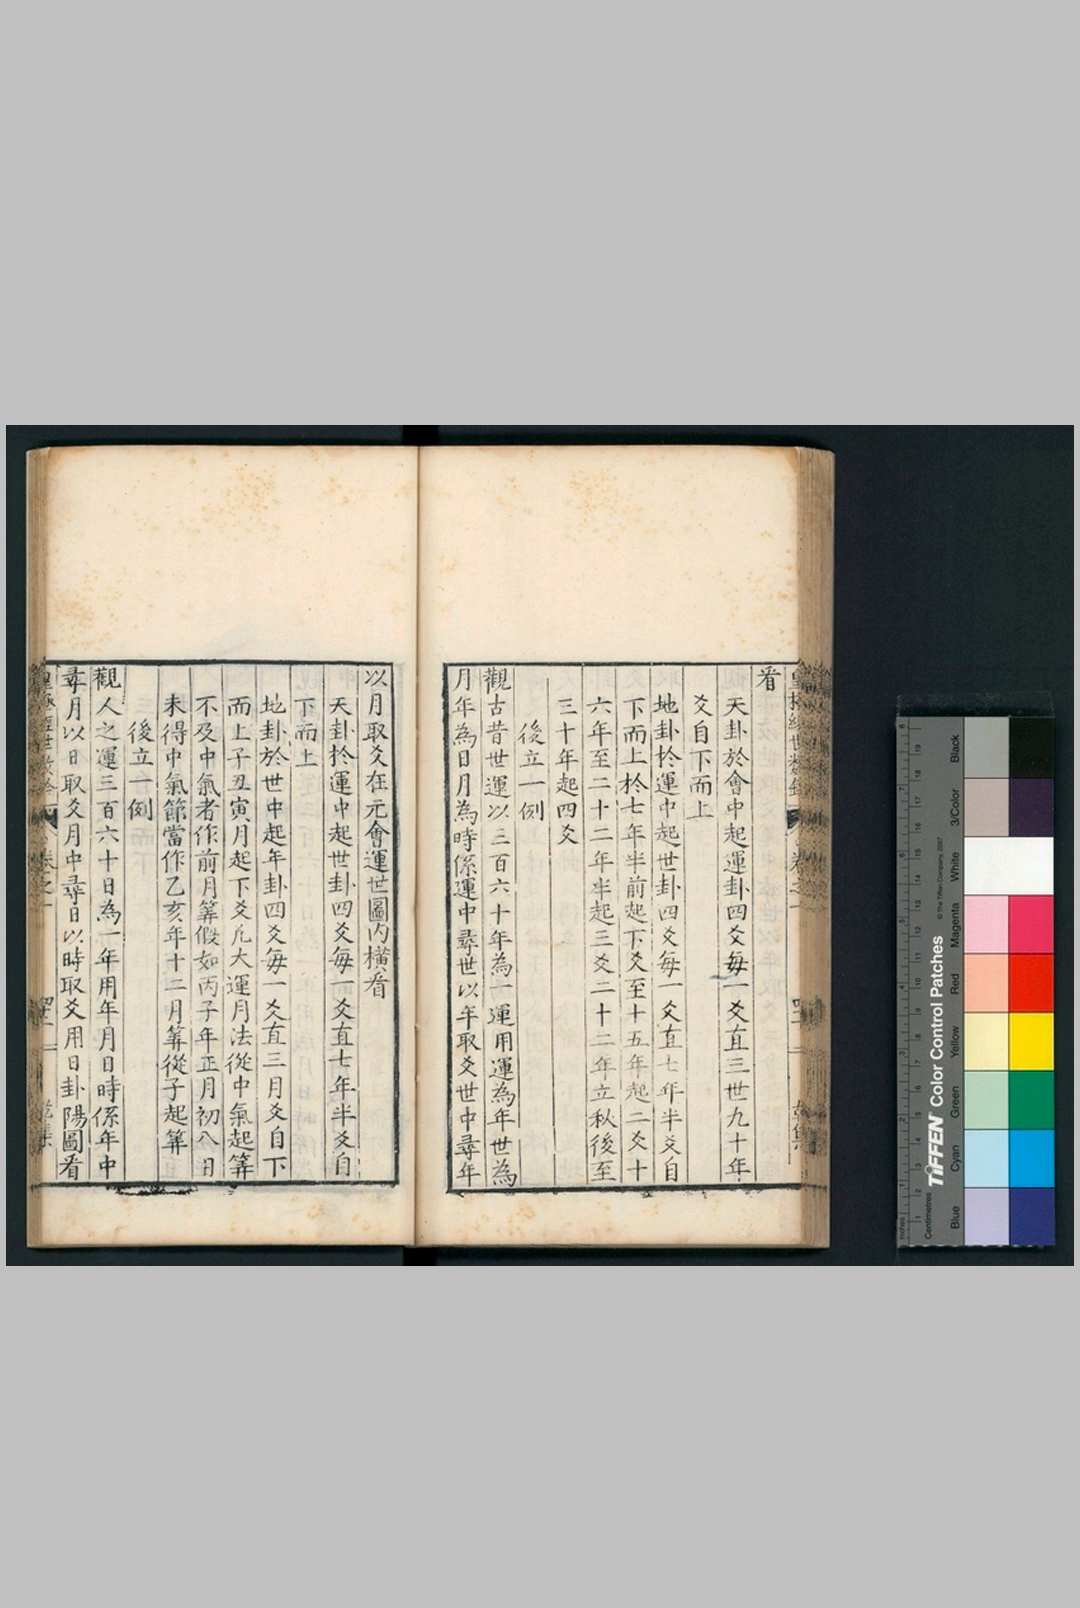 看
天卦於會中起運卦四爻每一爻直三世九十年
爻自下而上
地卦扵運中起世卦四爻每一爻直七年半爻自
下而上扵七年半前起下爻至十五年起二爻十
六年至二十二年半起三爻二十二年立秋後至
三十年起四爻
後立一例
觀古昔世運以三百六十年為一運用運為年世為
月年為日月為時係運中尋世以年取爻世中尋年
以月取爻在元會運世圖內橫看
天卦扵運中起世卦四爻每一爻直七年半爻自
下而上
地卦於世中起年卦四爻每一爻直三月爻自下
而上子丑寅月起下爻凢大運月法從中氣起筭
不及中氣者作前月筭假如丙子年正月初八日
未得中氣節當作乙亥年十二月筭從子起筭
後立一例
觀人之運三百六十日為一年用年月日時係年中
尋月以日取爻月中尋日以時取爻用日卦陽圖看
卷之一
TIFFEN Color Control Patches
© The Tiffen Company, 2007
Inches
Centimetres
Blue
Cyan
Green
Yellow
Red
Magenta
White
3/Color
Black